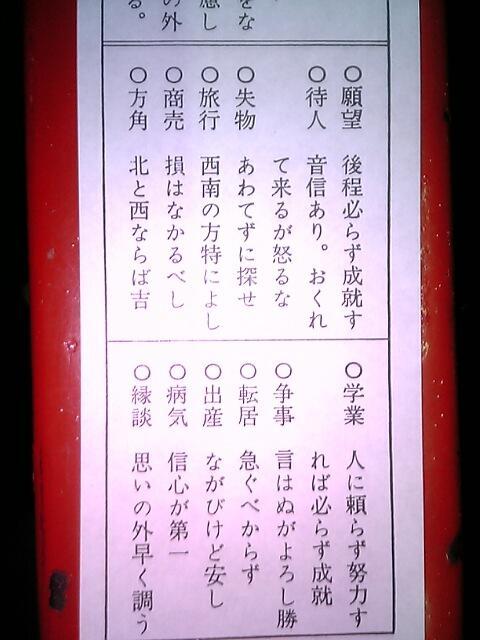 をな
慮し
の外
る。
○願望　後程必らず成就す
○待人　音信あり。おくれ
て来るが怒るな
○失物　あわてずに探せ
○旅行　西南の方特によし
○商売　損はなかるべし
○方角　北と西ならば吉
○学業　人に頼らず努力す
れば必らず成就
○争事　言はぬがよろし勝
○転居　急ぐべからず
○出産　ながびけど安し
○病気　信心が第一
○縁談　思いの外早く調う